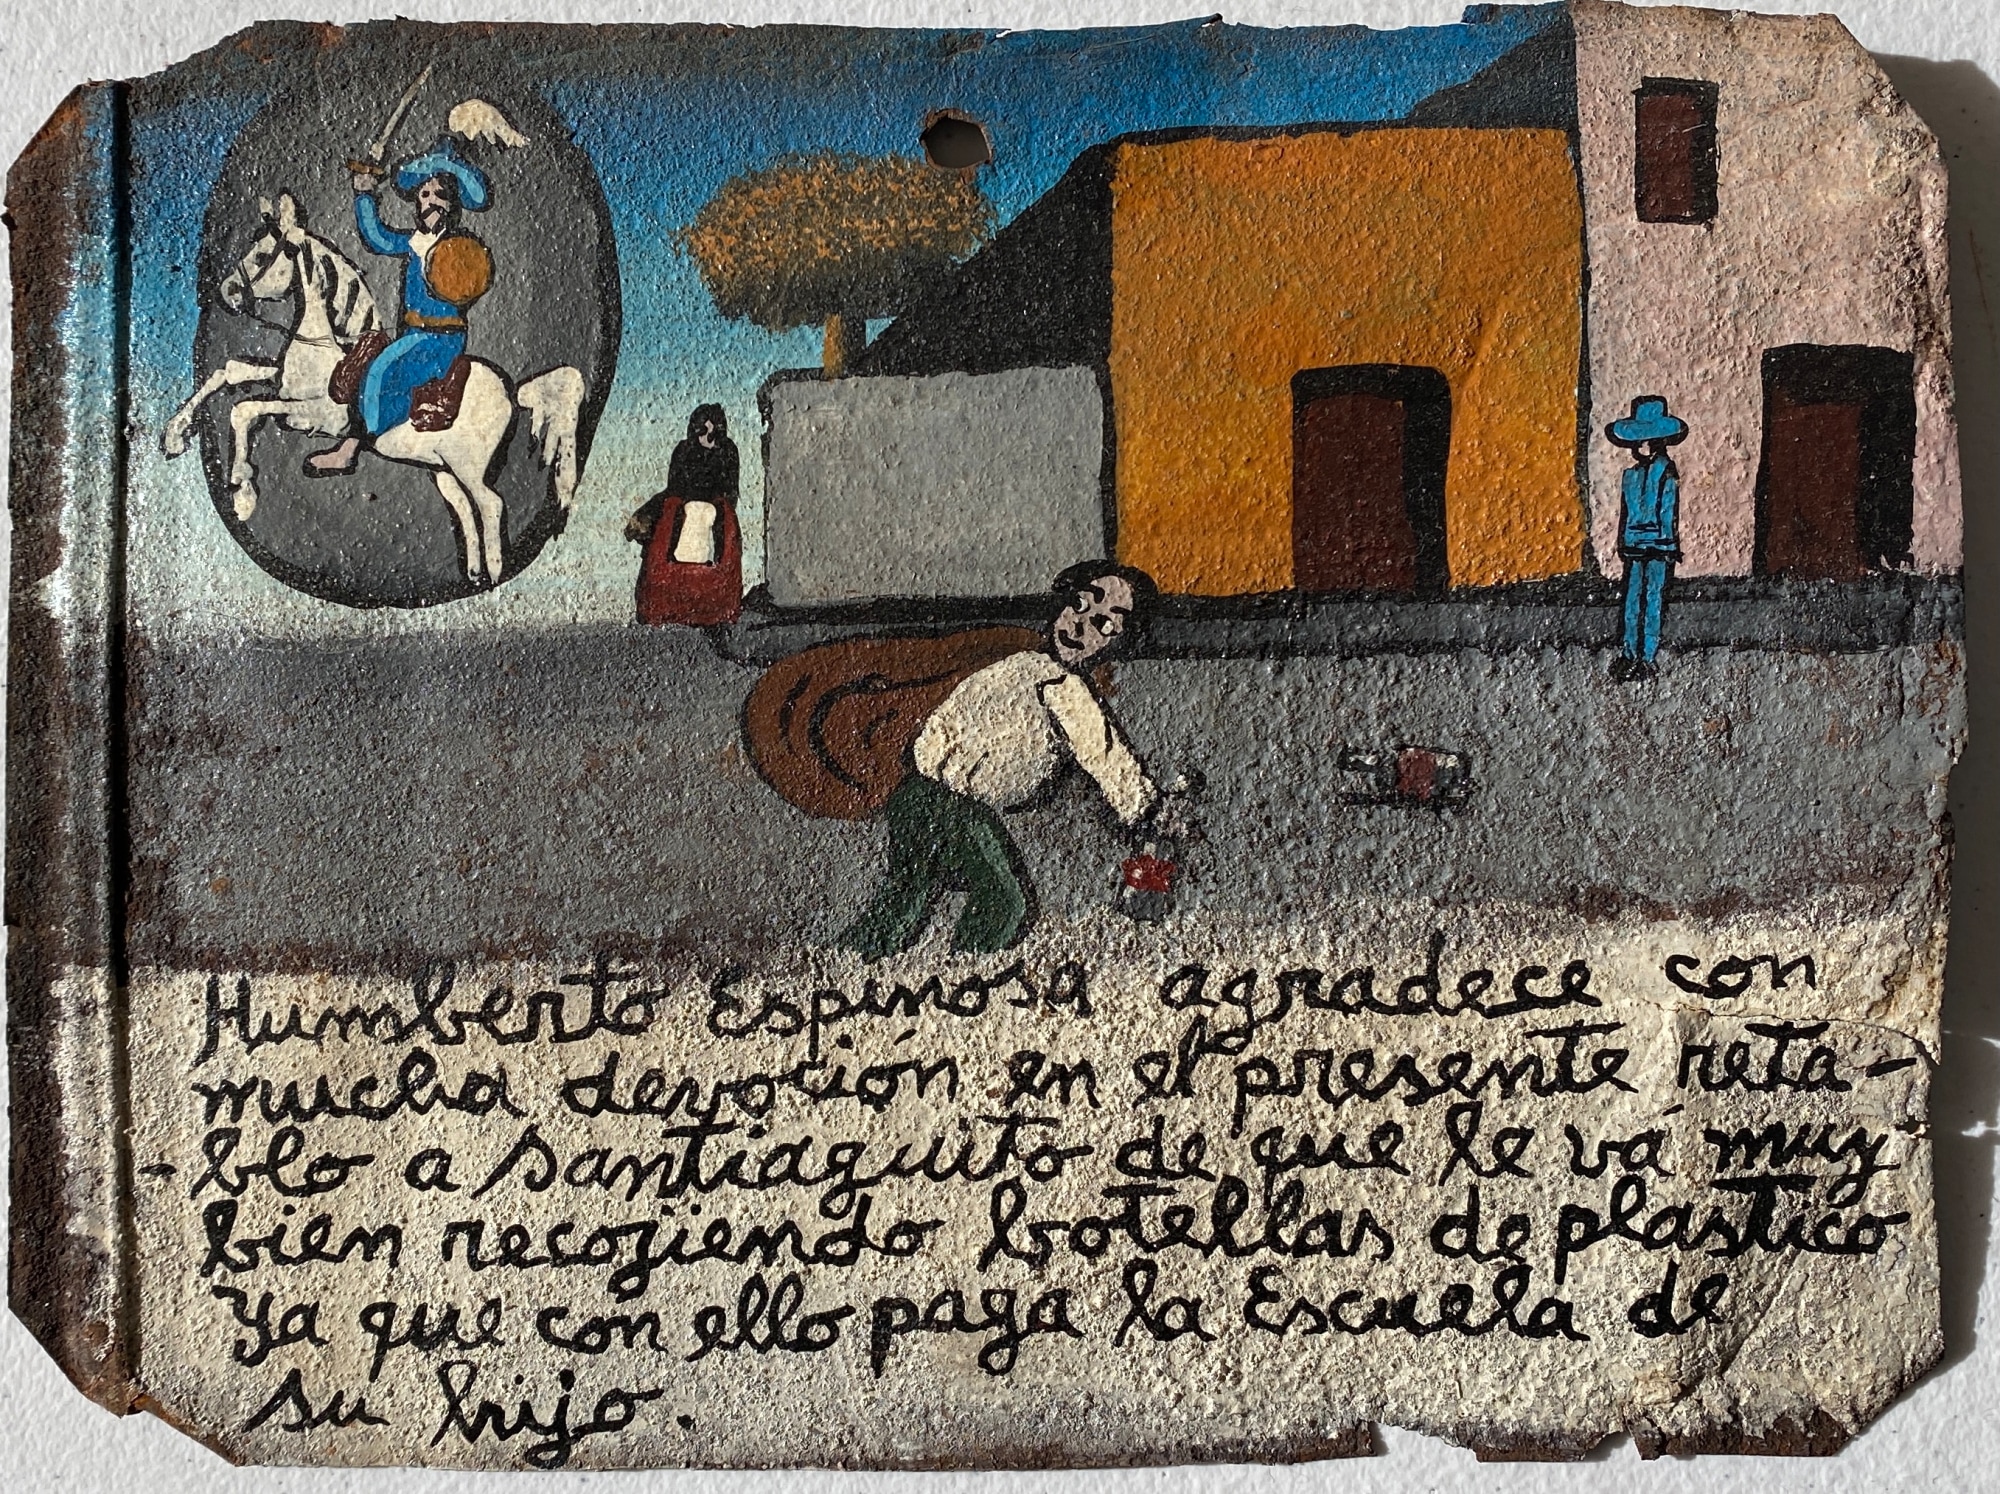 Humberto Espinosa agradece con
mucha devoción en el presente reta-
-blo a Santiaguito de que le vá muy
bien recojiendo botellas de plastico
ya que con ello paga la Escuela de
su hijo.